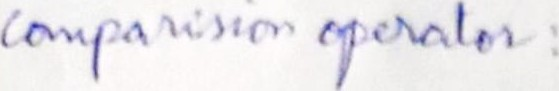 comparision operator: